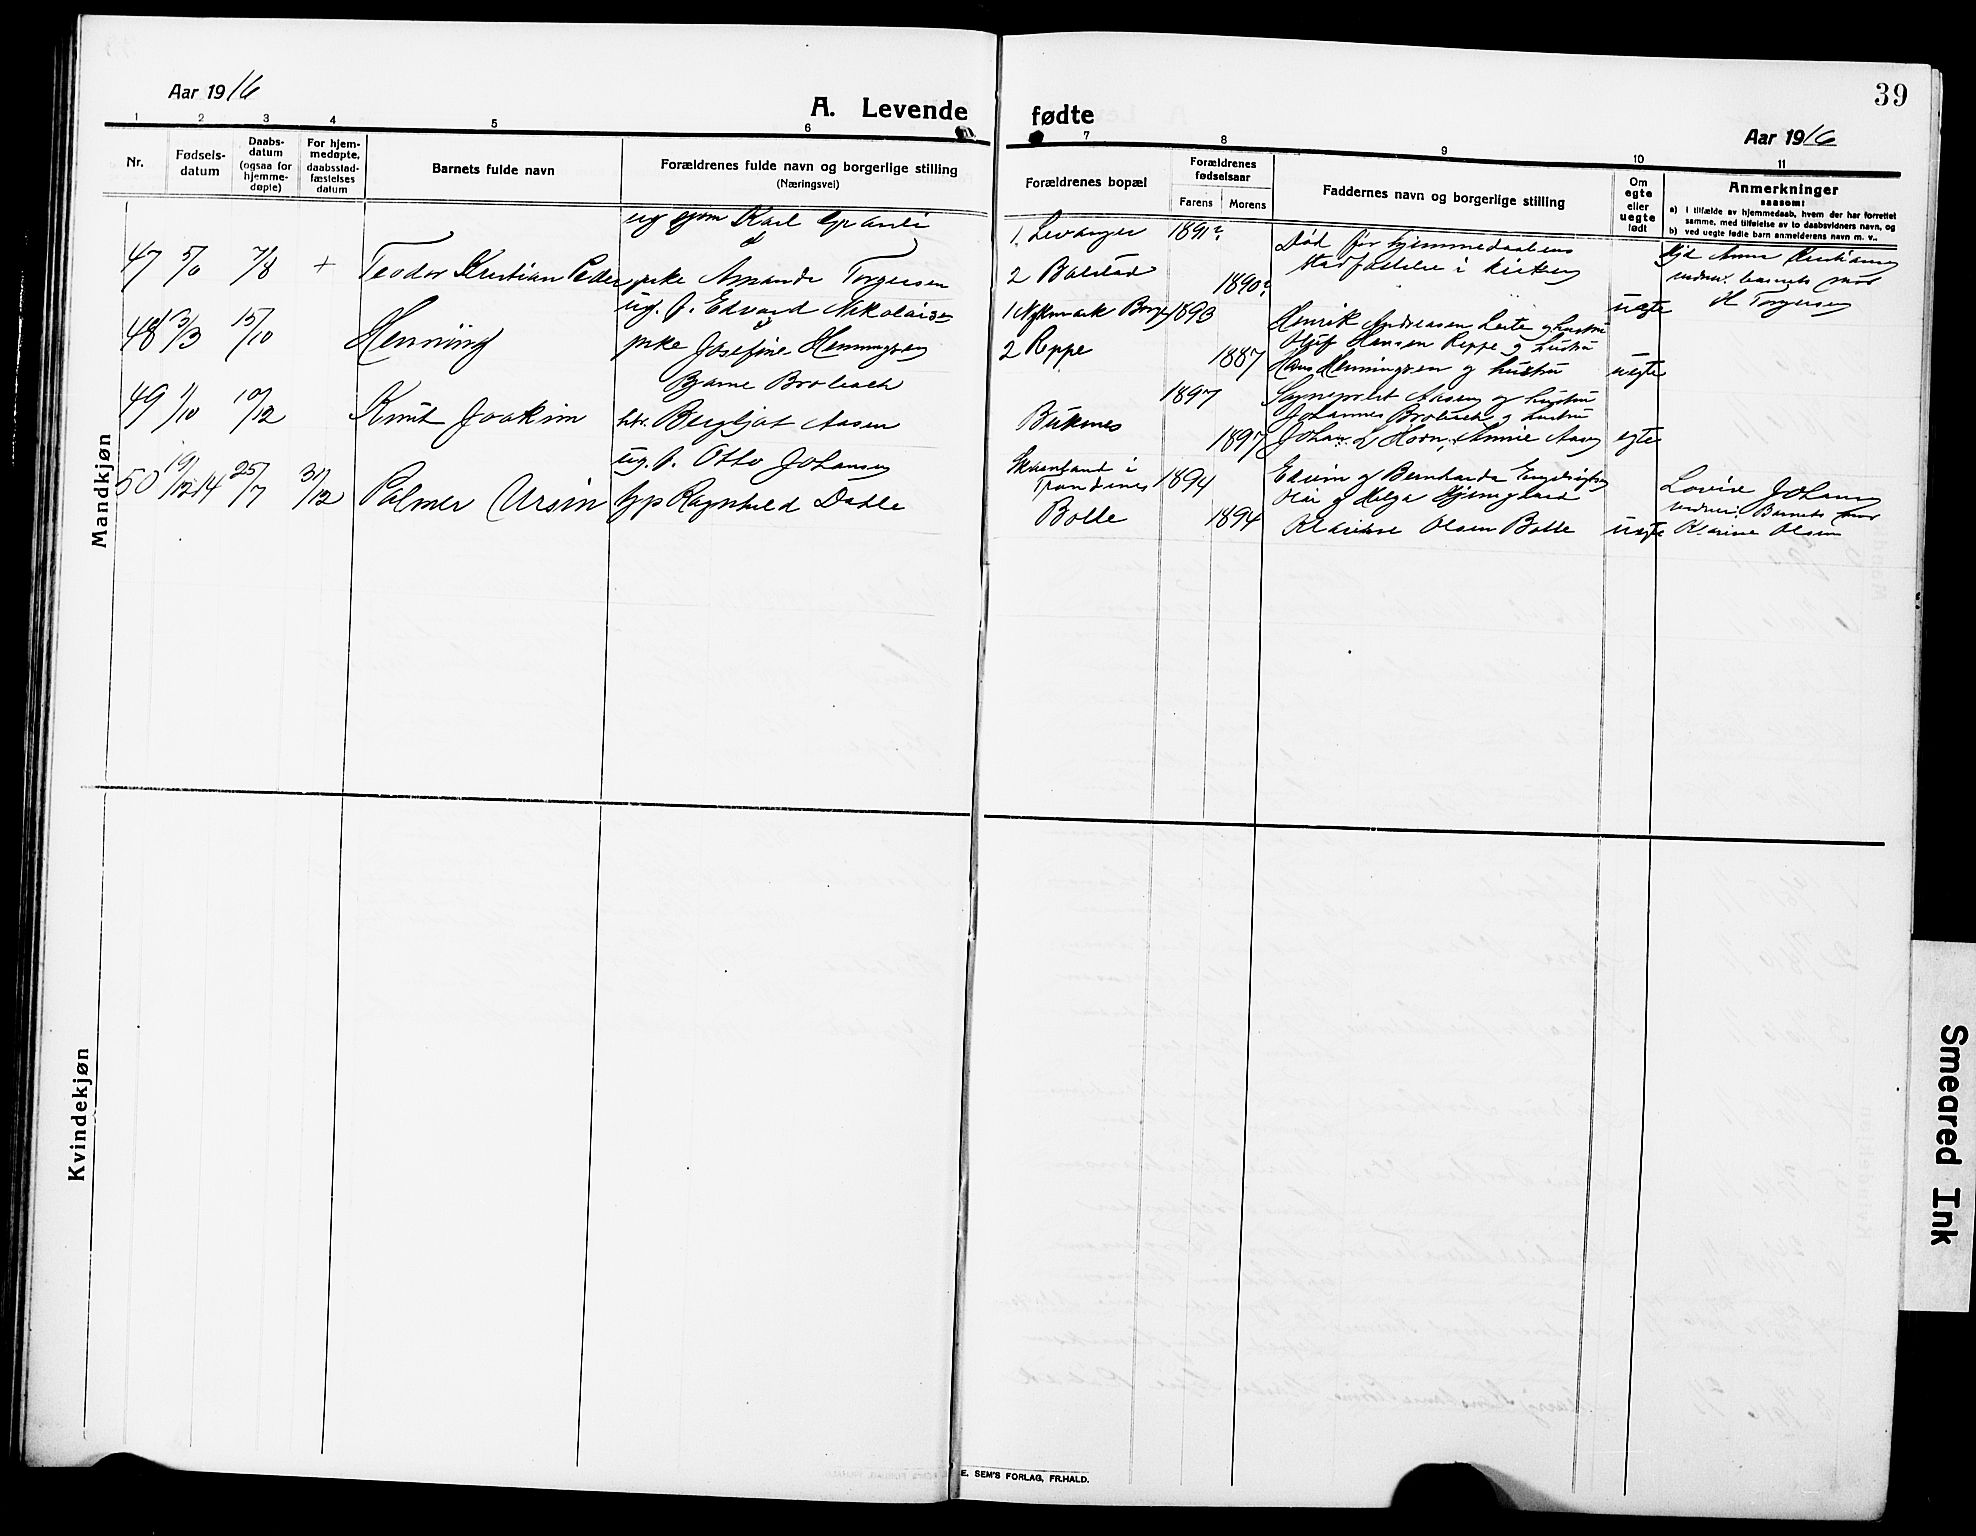 39
Aar 1916
A. Levende fødte
Aar 1916
1 2 3 4 5 6 7 8 9 10 11
Nr.
Fødsels-
datum
Daabs-
datum
(ogsaa for
hjemme-
døpte)
For hjem-
medøpte,
daabsstad-
fæstelses
datum
Barnets fulde navn
Forældrenes fulde navn og borgerlige stilling
(Næringsvei)
Forældrenes bopæl
Forældrenes
fødselsaar
Farens Morens
Faddernes navn og borgerlige stilling
Om
egte
eller
uegte
født
Anmerkninger
saasom:
a) i tilfælde av hjemmedaab, hvem der har forrettet
samme, med tilføielse av to daabsvidners navn, og
b) ved uegte fødte barn anmelderens navn m. v..
Mandkjøn
ug Karl
1. Levanger 1891?
Død før hjemmedaabens
stadfæstelse i kirken
47 7/8 + Teodor Kristian Peder
pike Amanda Torgersen
2 Balstad 1890?
uegte
barnets mor
Torgersen
48 3/3 15/10 Henning
ug. f. Edvard Nikolaisen
pike Josefine Henningsen
1893
2 Reppe 1887
Henrik Andreasen Leite og hustru
Oluf Hansen Reppe og hustru
Hans Henningsen og hustru
uegte
49 1/10 10/12 Knut Joakim
Bjarne Brobach
htr. Bergljot Aasen
Buksnes
1897
1897
Aasen og hustru
Johannes Brobach og hustru
Johan L Horn, Annie Aasen
egte
50 19/12-14 25/7 31/12 Palmer Ursin
ug. f. Otto Johansen
Ragnhild Dahle
Skaanland i
Trondenes 1894
Bolle 1894
Edvin og Bernharda Engebrigtsen
Olai og Helga Hjemgaard
Klarine Olsen Bolle
uegte
Lovise Johansen
Barnets mor
Klarine Olsen
Kvindekjøn
E. SEM'S FORLAG, FR.HALD.
Smeared Ink